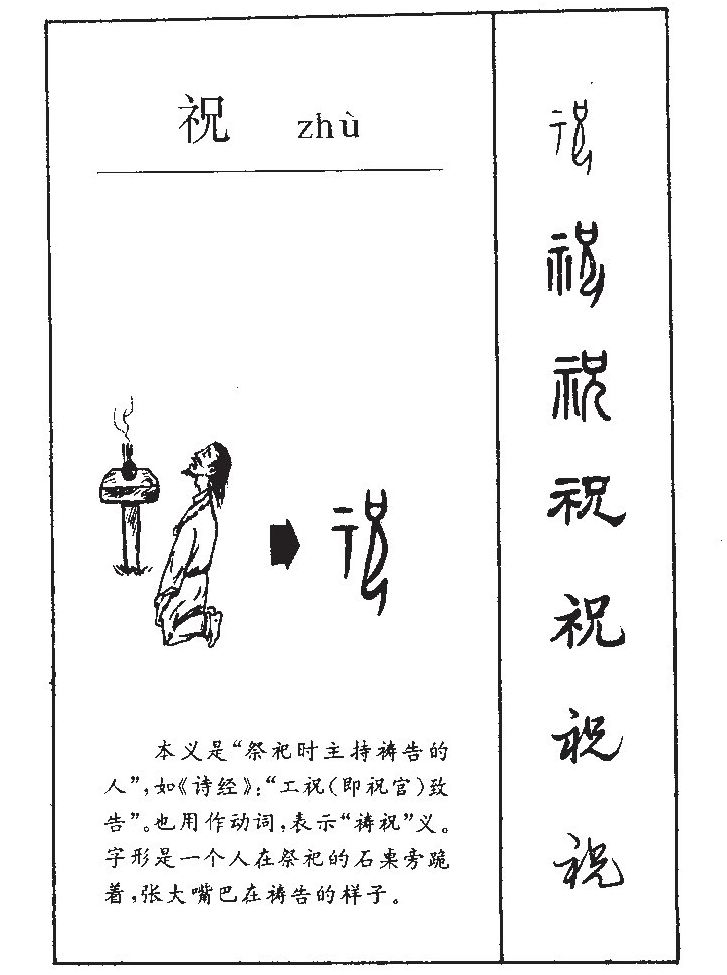 祝 zhù
本义是“祭祀时主持祷告的
人”,如《诗经》:“工祝(即祝官)致
告”。也用作动词,表示“祷祝”义。
字形是一个人在祭祀的石桌旁跪
着,张大嘴巴在祷告的样子。
祝
祝
祝
祝
祝
祝
祝
祝